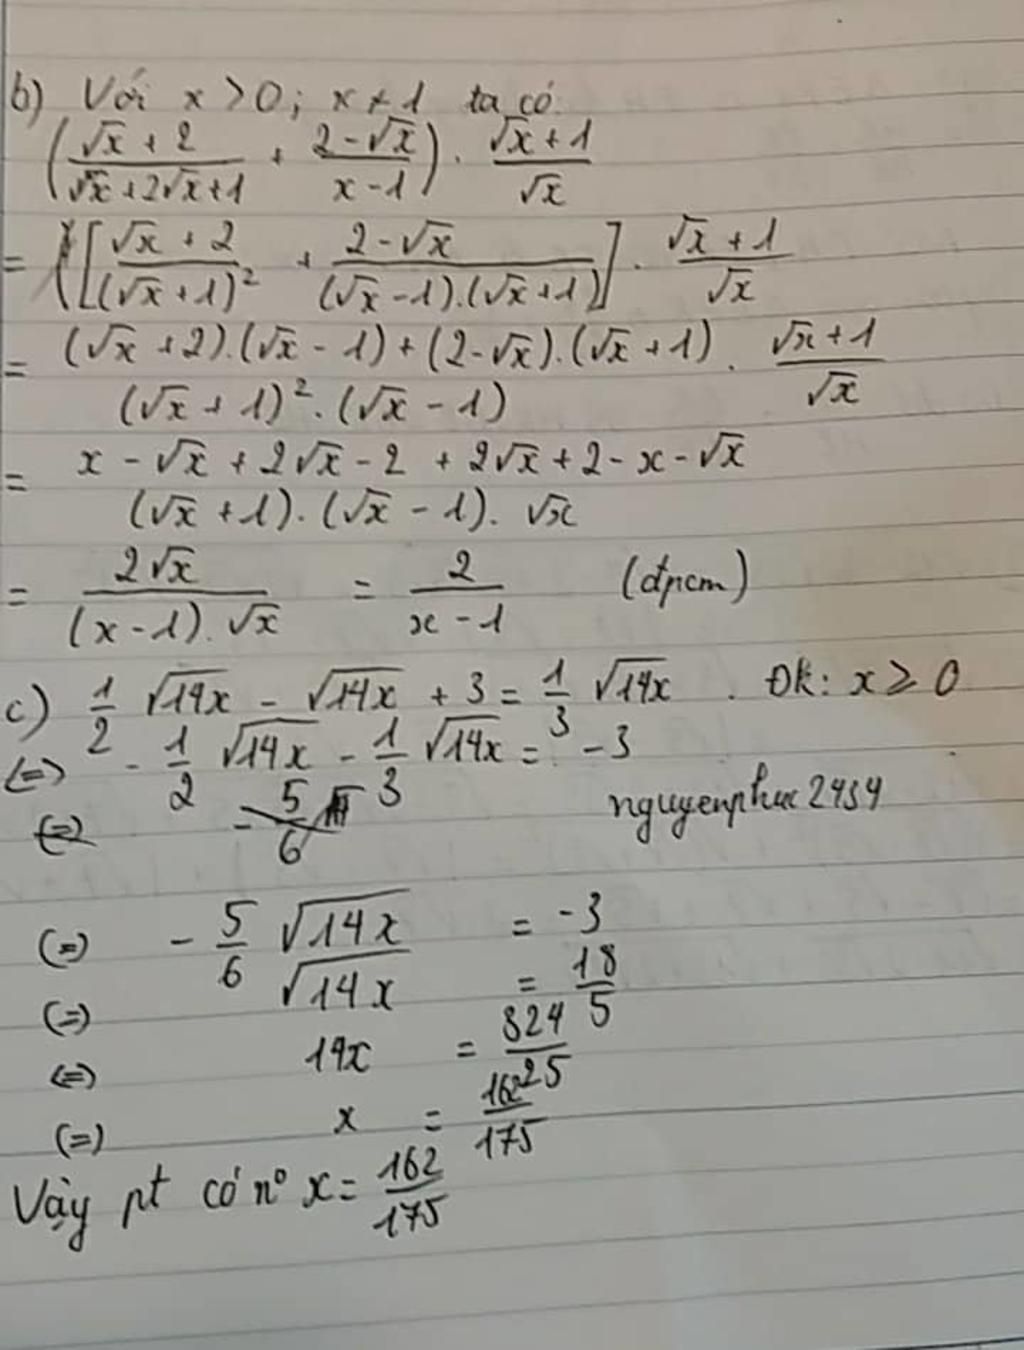 b) Với x > 0 ; x ≠ 1 ta có:
((√x + 2)/(√x + 2√x + 1) + (2 - √x)/(x - 1)) . (√x + 1)/√x
= [(√x + 2)/(√x + 1)² + (2 - √x)/((√x - 1).(√x + 1))] . (√x + 1)/√x
= ((√x + 2).(√x - 1) + (2 - √x).(√x + 1))/((√x + 1)².(√x - 1)) . (√x + 1)/√x
= (x - √x + 2√x - 2 + 2√x + 2 - x - √x)/((√x + 1).(√x - 1).√x)
= 2√x/((x - 1).√x) = 2/(x - 1) (đpcm)
c) 1/2 √14x - √14x + 3 = 1/3 √14x . Đk: x ≥ 0
(=) - 1/2 √14x - 1/3 √14x = -3
(=) - 5/6
nguyenphuc2454
(=) - 5/6 √14x = -3
(=) √14x = 18/5
(=) 14x = 324/25
(=) x = 162/175
Vậy pt có n° x = 162/175